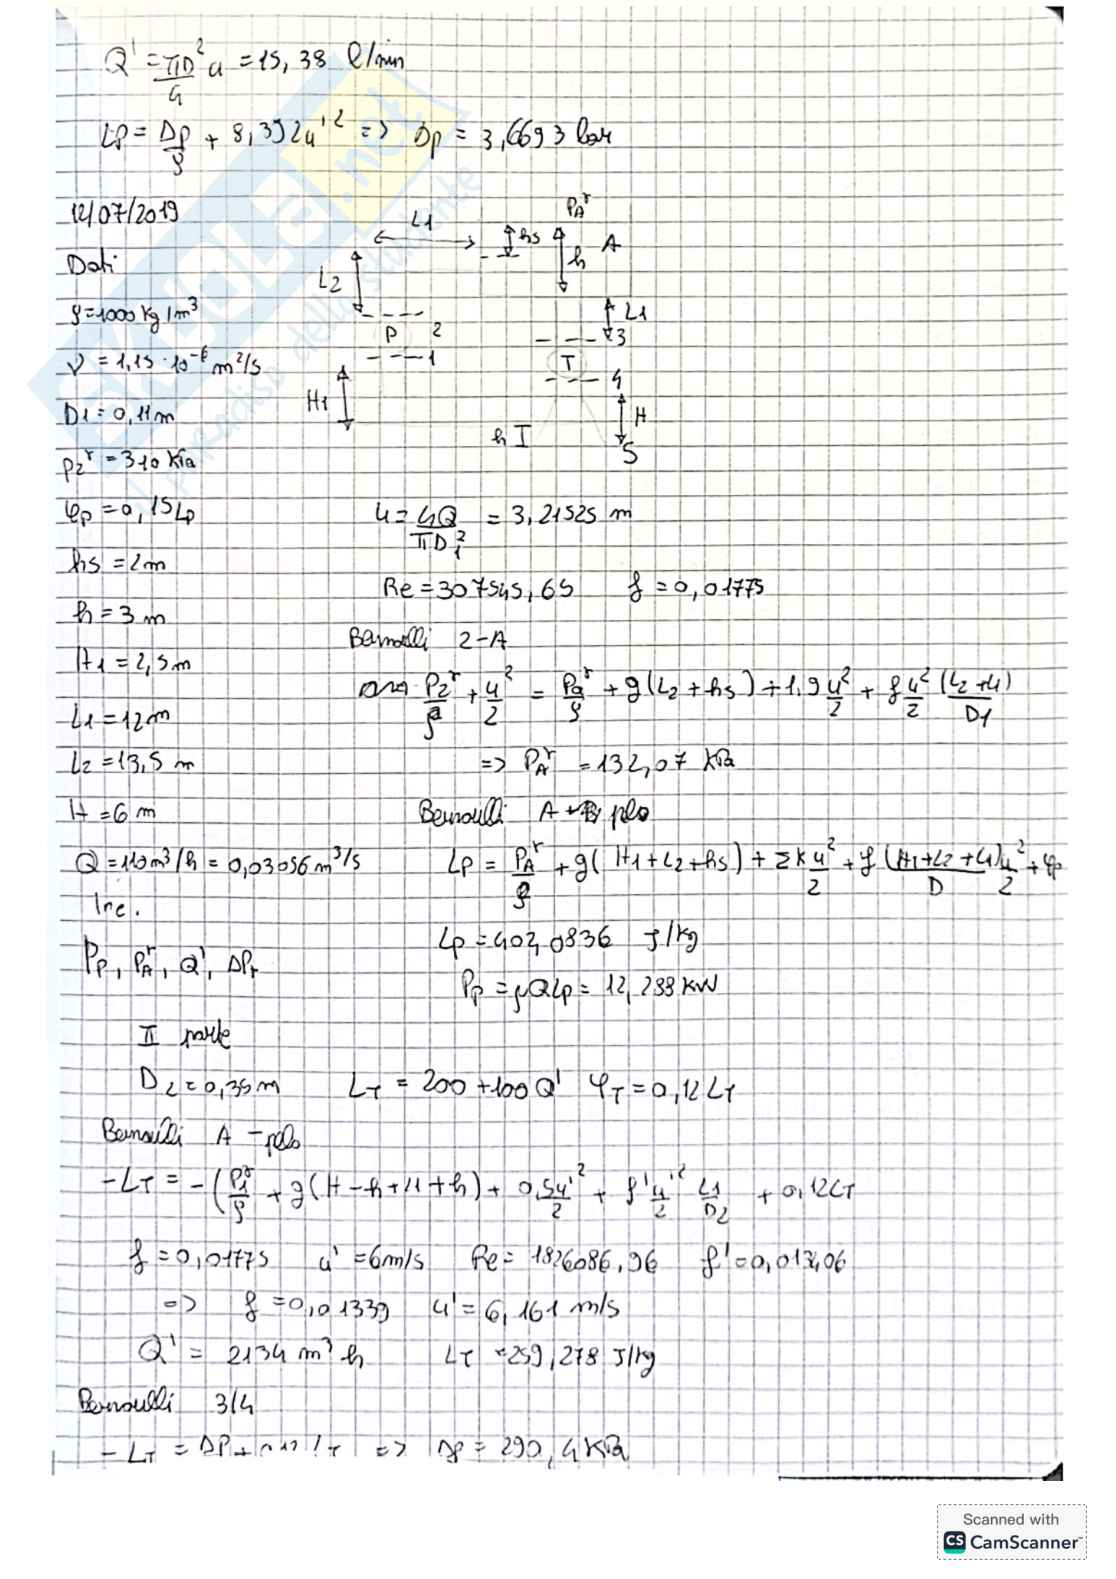 Q' = πD²/4 u = 15,38 l/min
Lp = Δp/ρ + 8,392u'² => Δp = 3,6693 bar
12/07/2019
Dati
ρ=1000 kg/m³
ν = 1,15·10⁻⁶ m²/s
D1 = 0,11 m
p2ʳ = 310 KPa
φp = 0,15Lp
hs = 2m
h = 3 m
H1 = 2,5 m
L1 = 12m
L2 = 13,5 m
H = 6 m
Q = 110 m³/h = 0,03056 m³/s
Inc.
Pp, PAʳ, Q', ΔPT
L1
hs
PAʳ
A
h
L2
P
2
1
L1
3
T
4
H1
H
h
5
u = 4Q/πD1² = 3,21525 m
Re = 307545,65 f = 0,01775
Bernoulli 2-A
P2ʳ/ρ + u²/2 = Paʳ/ρ + g(L2+hs) + 1,9 u²/2 + f u²/2 (L2+L1)/D1
=> PAʳ = 132,07 KPa
Bernoulli A pelo
Lp = PAʳ/ρ + g(H1+L2+hs) + Σk u²/2 + f (H1+L2+L1)/D u²/2 + φp
Lp = 402,0836 J/kg
Pp = ρQLp = 12,288 kW
II parte
D2 = 0,35 m LT = 200 + 100Q' φT = 0,12LT
Bernoulli A - pelo
-LT = -(P1ʳ/ρ + g(H-h+L1+h) + 0,5u'²/2 + f'u'²/2 L1/D2 + 0,12LT
f = 0,01775 u' = 6m/s Re = 1826086,96 f' = 0,013406
=> f = 0,01339 u' = 6,161 m/s
Q' = 2134 m³ h LT = 259,278 J/kg
Bernoulli 3/4
-LT = ΔP + 0,12 LT => Δp = 290,4 KPa
Scanned with
CS CamScanner